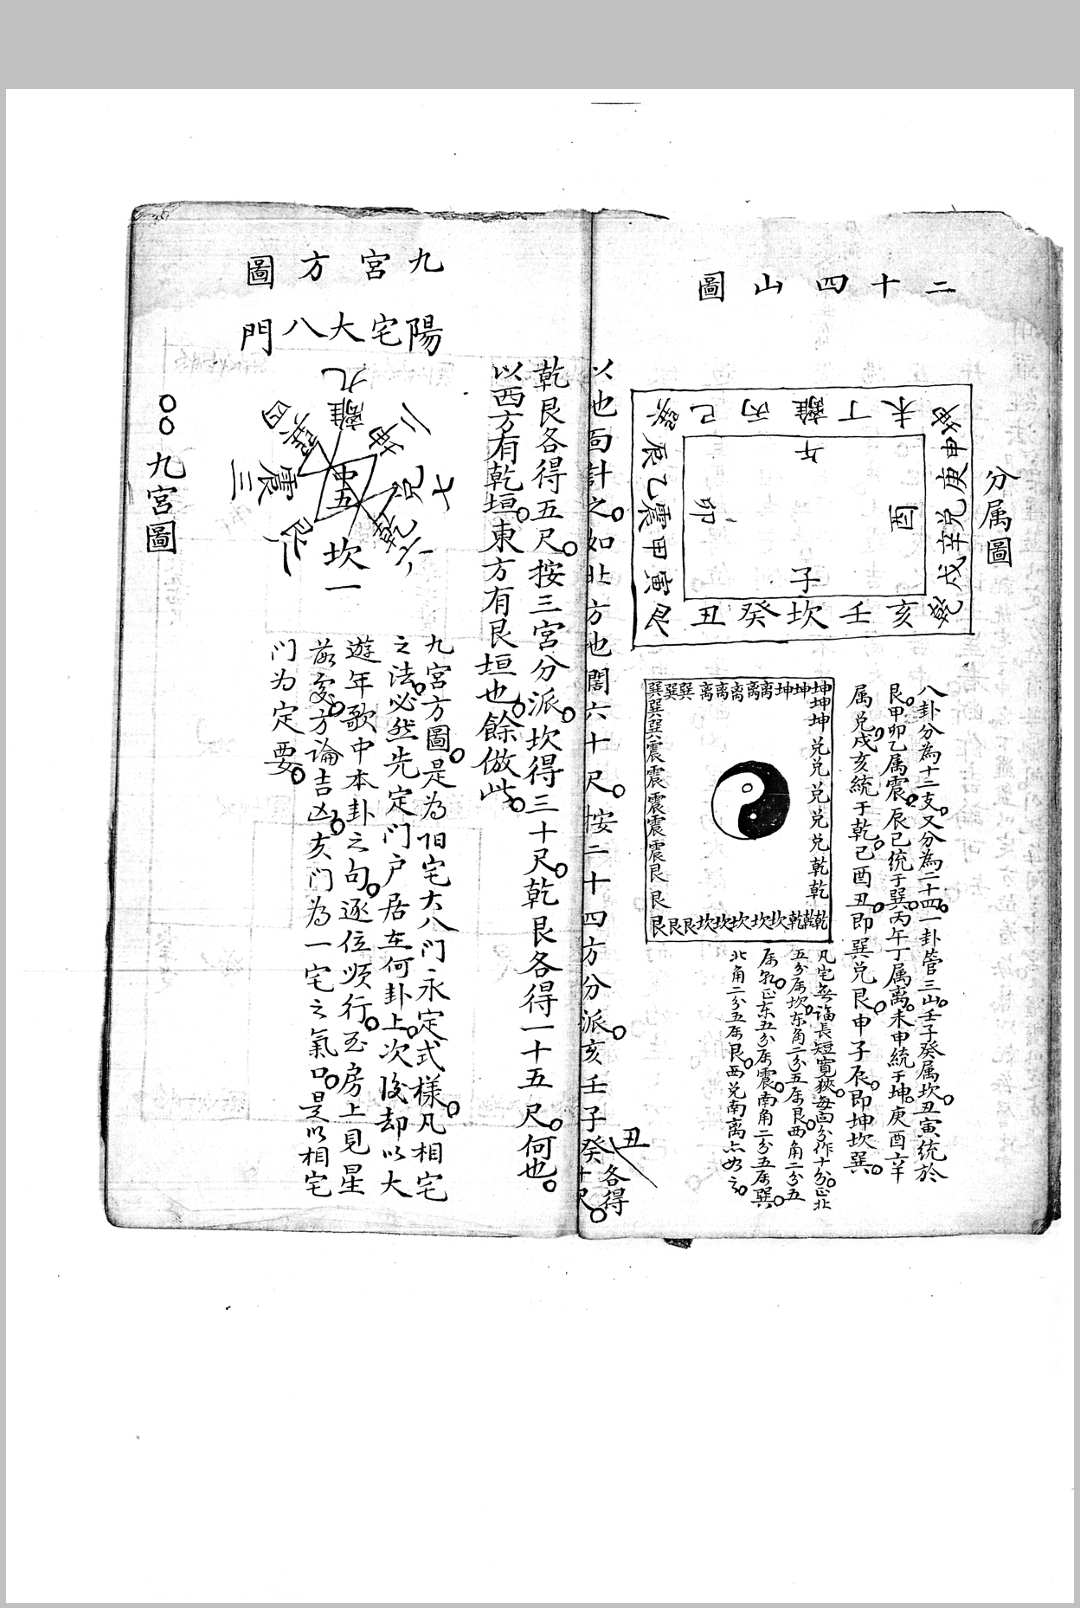 二十四山圖
分属圖
巽巳丙離丁未坤
申庚兑辛戌乾
辰乙震甲寅艮
丑癸坎壬亥
午
卯
酉
子
巽巽巽离离离离离坤坤坤
坤坤兑兑兑兑兑乾乾
巽巽震震震震震艮艮
艮艮艮坎坎坎坎坎乾乾乾
八卦分為十二支又分為二十四一卦管三山壬子癸属坎丑寅统於
艮甲卯乙属震辰巳统于巽丙午丁属离未申統于坤庚酉辛
属兑戌亥統于乾巳酉丑即巽兑艮申子辰即坤坎巽
凡宅無論長短寬狹每面分作十分正北
五分属坎东角二分五属艮西角二分五
属乾正东五分属震南角二分五属巽
北角二分五属艮西兑南离亦如之
以地面計之如北方也闊六十尺按二十四方分派亥壬子癸丑各得十尺
乾艮各得五尺按三宮分派坎得三十尺乾艮各得一十五尺何也
以西方有乾垣東方有艮垣也餘倣此
九宮方圖
陽宅大八門
九
離
二坤
巽四
震三
中五
兑七
乾六
艮八
坎一
九宮方圖是為阳宅大八门永定式樣凡相宅
之法必然先定门户居在何卦上次後却以大
遊年歌中本卦之句逐位順行至房上見星
落處方論吉凶夫门為一宅之氣口是以相宅
门为定要
九宮圖